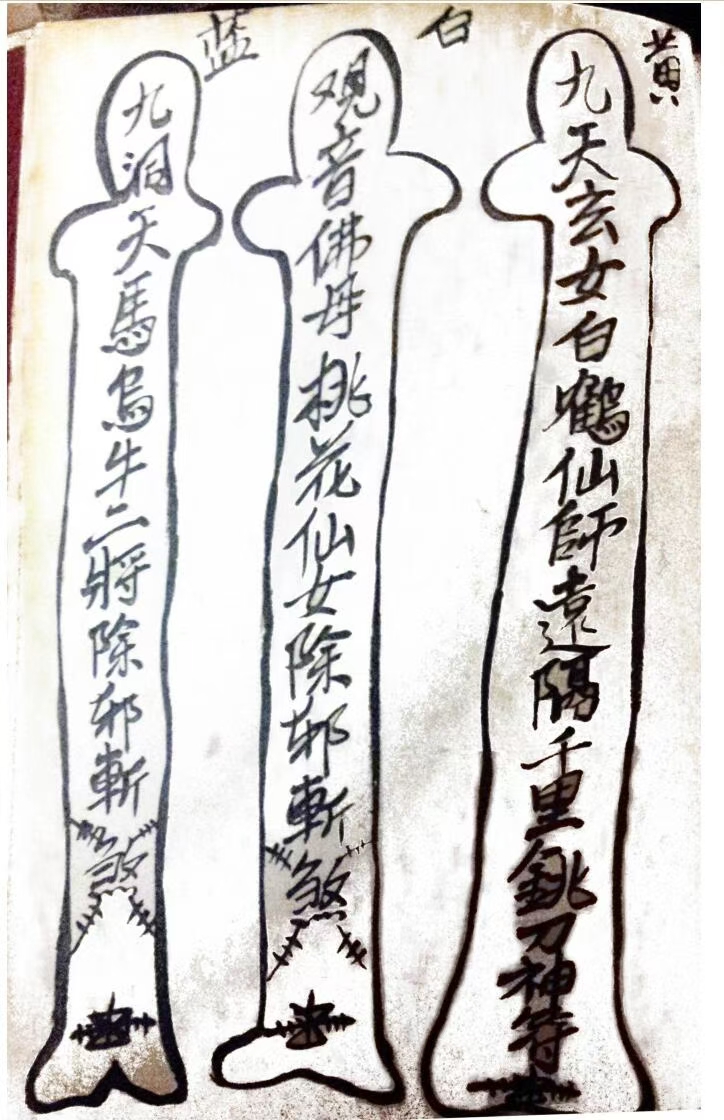 黄
九天玄女白鶴仙師遠隔千里銚刀神符
白
观音佛母桃花仙女除邪斬煞
蓝
九洞天馬烏牛二將除邪斬煞